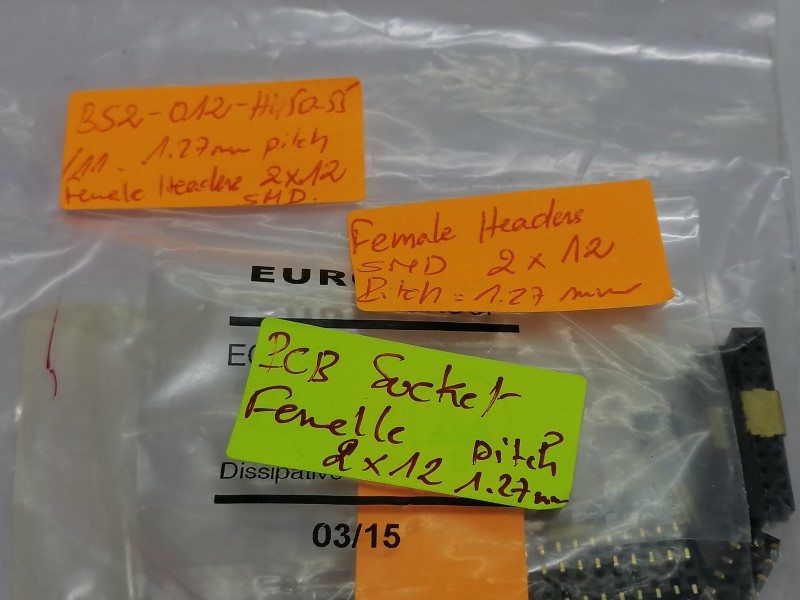 BS2-012-H450-55
/11. 1.27mm pitch
Female Headers 2x12
SMD.
Female Headers
SMD 2x12
Pitch = 1.27 mm
EURO
PCB Socket
Femelle
2x12 pitch
1.27mm
Dissipative
03/15